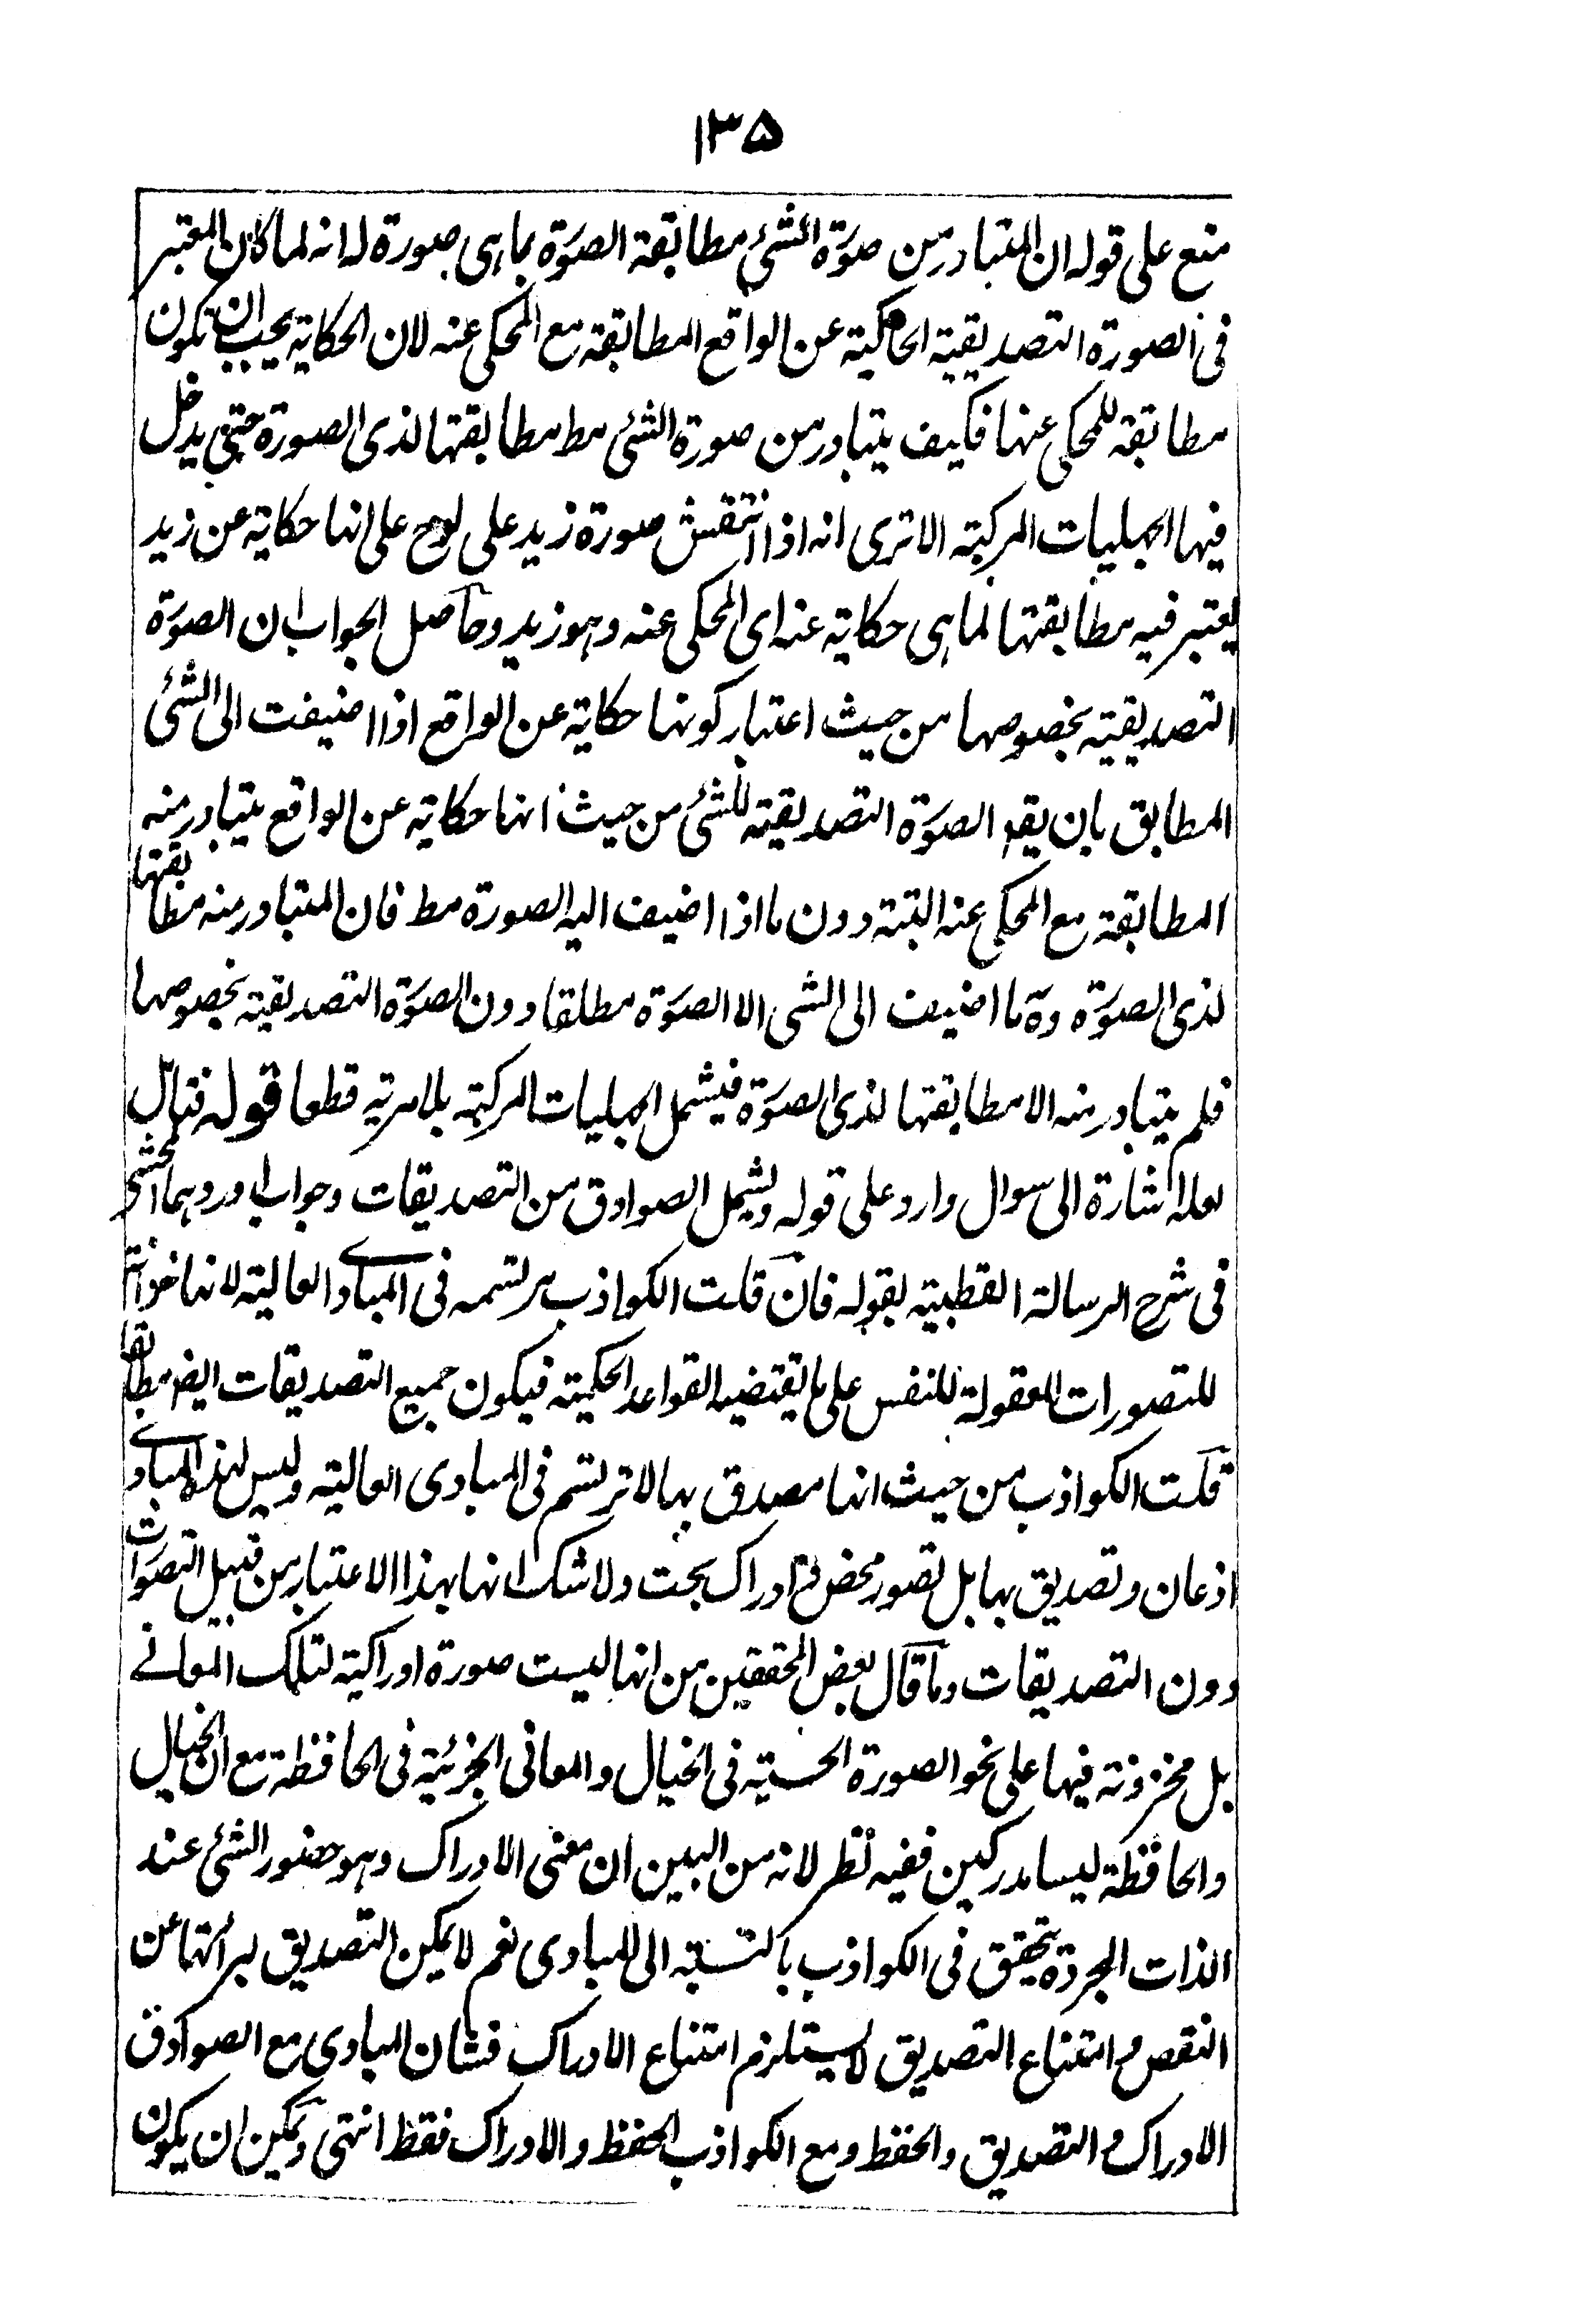 ١٣٥
منع على قوله ان المتبادر من صورة الشئ مطابقة الصورة بما هى صورة له انه لما كان المعتبر
فى الصورة التصديقية الحاكية عن الواقع المطابقة مع المحكى عنه لان الحكاية يجب ان تكون
مطابقة للمحكى عنها فكيف يتبادر من صورة الشئ مط مطابقتها لذى الصورة حتى يدخل
فيها الجهليات المركبة الا ترى انه اذا انتقش صورة زيد على لوح على انها حكاية عن زيد
يعتبر فيه مطابقتها لما هى حكاية عنه اى المحكى عنه وهو زيد وحاصل الجواب ان الصورة
التصديقية بخصوصها من حيث اعتبار كونها حكاية عن الواقع اذا اضيفت الى الشئ
المطابق بان يقم الصورة التصديقية للشئ من حيث انها حكاية عن الواقع يتبادر منه
المطابقة مع المحكى عنه البتة دون ما اذا اضيف اليه الصورة مط فان المتبادر منه مطابقتها
لذى الصورة وة ما اضيف الى الشى الا الصورة مطلقا دون الصورة التصديقية بخصوصها
فلم يتبادر منه الا مطابقتها لذى الصورة فيشمل الجهليات المركبة بلا مرية قطعا قوله فتامل
لعله اشارة الى سوال وارد على قوله ويشمل الصوادق من التصديقات وجواب اوردهما المحشى
فى شرح الرسالة القطبية بقوله فان قلت الكواذب مرتسمة فى المبادى العالية لانها خزانة
للتصورات المعقولة للنفس على ما يقتضيه القواعد الحكمية فيكون جميع التصديقات ايضا مطابقا
قلت الكواذب من حيث انها مصدق بها لا ترتسم فى المبادى العالية وليس لهذه المبادى
اذعان وتصديق بها بل تصور محض و ادراك بحت ولا شك انها بهذا الاعتبار من قبيل التصورات
دون التصديقات وما قال بعض المحققين من انها ليست صورة ادراكية لتلك المعانے
بل مخزونة فيها على نحو الصورة الحسية فى الخيال والمعانى الجزئية فى الحافظة مع ان الخيال
والحافظة ليسا مدركين ففيه نظر لانه من البين ان معنى الادراك وهو حضور الشئ عند
الذات المجردة يتحقق فى الكواذب بالنسبة الى المبادى نعم لا يمكن التصديق لبرائتها عن
النقص و امتناع التصديق لا يستلزم امتناع الادراك فشان المبادى مع الصوادق
الادراك و التصديق والحفظ ومع الكواذب الحفظ والادراك فقط انتهى ويمكن ان يكون